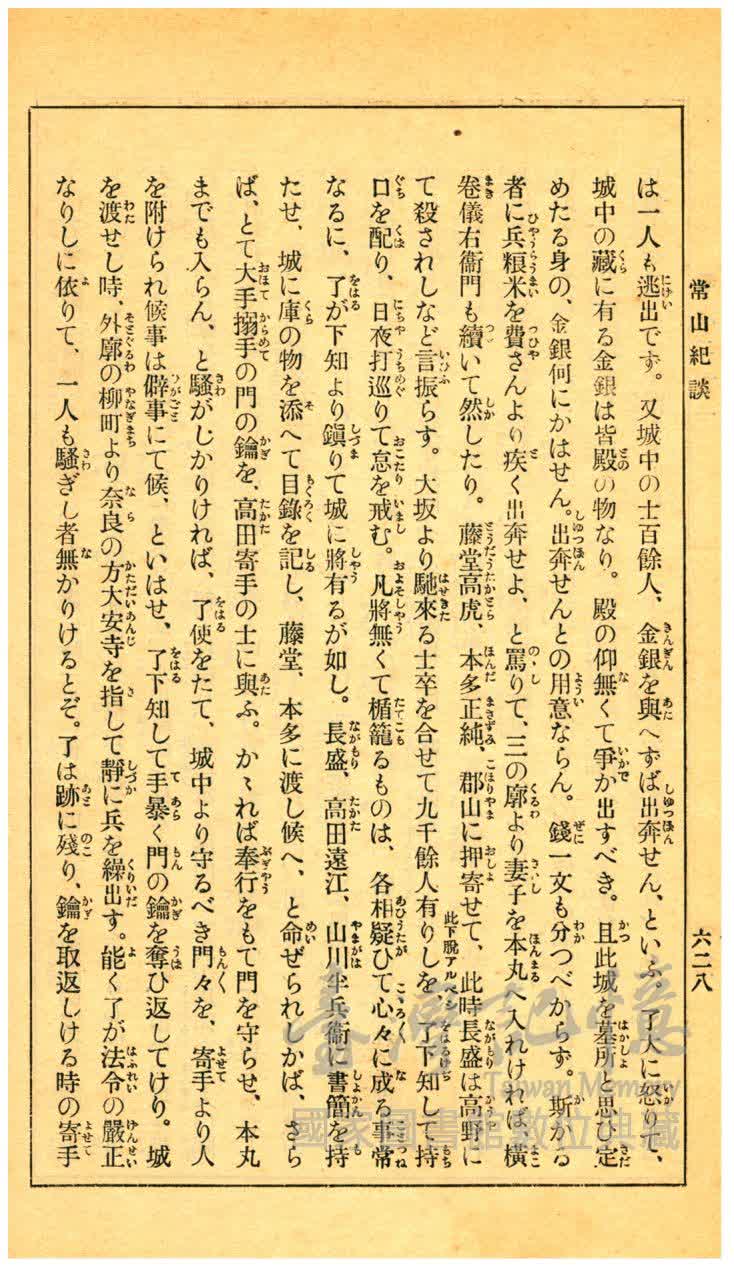 常山紀談
六二八
は一人も逃出です。又城中の士百餘人、金銀を與へずば出奔せん、といふ。了大に怒りて、
城中の藏に有る金銀は皆殿の物なり。殿の仰無くて爭か出すべき。且此城を墓所と思ひ定
めたる身の、金銀何にかはせん。出奔せんとの用意ならん。錢一文も分つべからず。斯かる
者に兵粮米を費さんより疾く出奔せよ、と罵りて、三の廓より妻子を本丸へ入れければ、橫
卷儀右衞門も續いて然したり。藤堂高虎、本多正純、郡山に押寄せて、此時長盛は高野に
て殺されしなど言振らす。大坂より馳來る士卒を合せて九千餘人有りしを、此下脱アルベシ了下知して持
口を配り、日夜打巡りて怠を戒む。凡將無くて楯籠るものは、各相疑ひて心々に成る事常
なるに、了が下知より鎭りて城に將有るが如し。長盛、高田遠江、山川半兵衞に書簡を持
たせ、城に庫の物を添へて目錄を記し、藤堂、本多に渡し候へ、と命ぜられしかば、さら
ば、とて大手搦手の門の鑰を、高田寄手の士に與ふ。かゝれば奉行をもて門を守らせ、本丸
までも入らん、と騷がしかりければ、了使をたて、城中より守るべき門々を、寄手より人
を附けられ候事は僻事にて候、といはせ、了下知して手暴く門の鑰を奪ひ返してけり。城
を渡せし時、外廓の柳町より奈良の方大安寺を指して靜に兵を繰出す。能く了が法令の嚴正
なりしに依りて、一人も騷ぎし者無かりけるとぞ。了は跡に殘り、鑰を取返しける時の寄手
臺灣記憶
Taiwan Memory
國家圖書館數位典藏